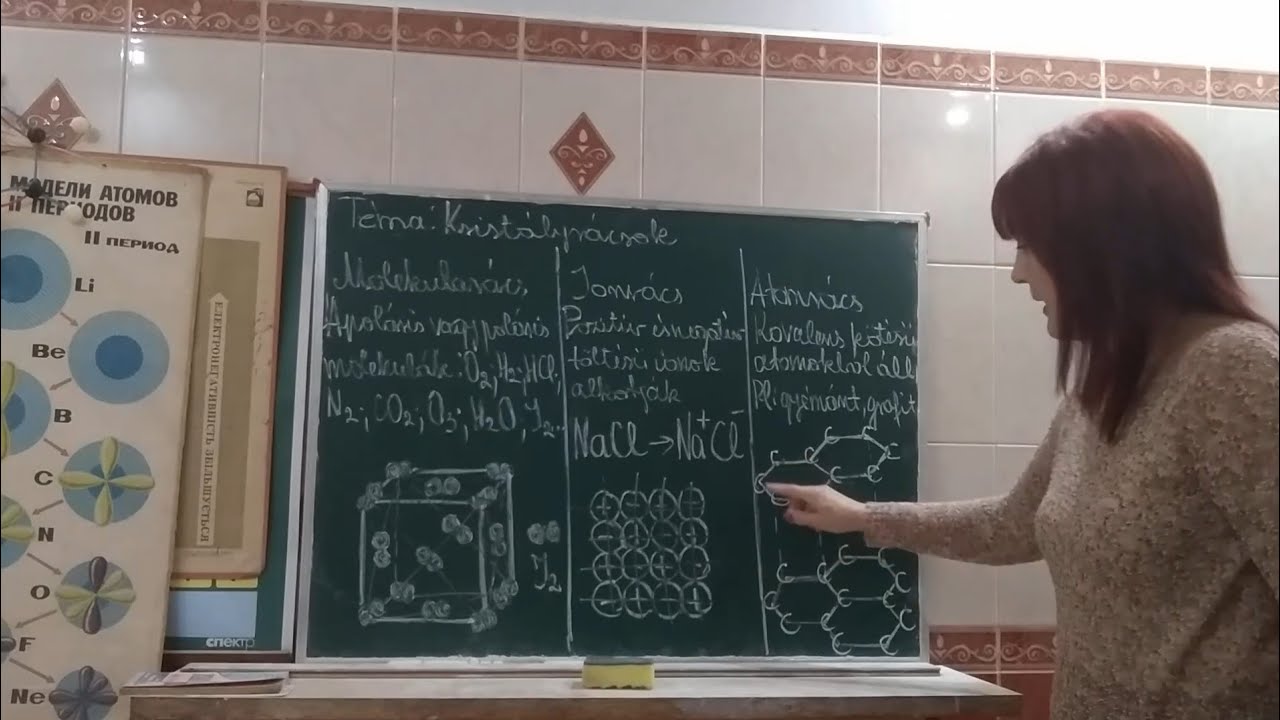 Téma: Kristályrácsok
Molekularács
Apoláris vagy poláris
molekulák: O₂; H₂; HCl;
N₂; CO₂; O₃; H₂O; I₂..
I₂
Ionrács
Pozitív és negatív
töltésű ionok
alkotják
NaCl → Na⁺Cl⁻
Atomrács
Kovalens kötésű
atomokból áll
Pl. gyémánt, grafit
МОДЕЛИ АТОМОВ
II ПЕРИОДОВ
II ПЕРИОД
Li
Be
B
C
N
O
F
Ne
ЕЛЕКТРОНЕГАТИВНІСТЬ ЗБІЛЬШУЄТЬСЯ
спектр